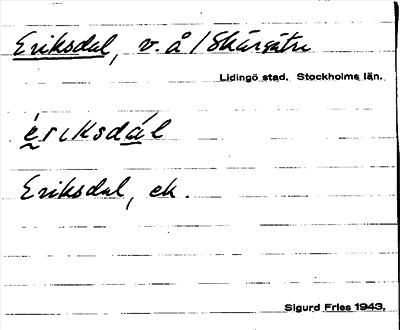 Eriksdal, v. å / Skärsätra
Lidingö stad. Stockholms län.
ériksdál
Eriksdal, ek.
Sigurd Fries 1943.